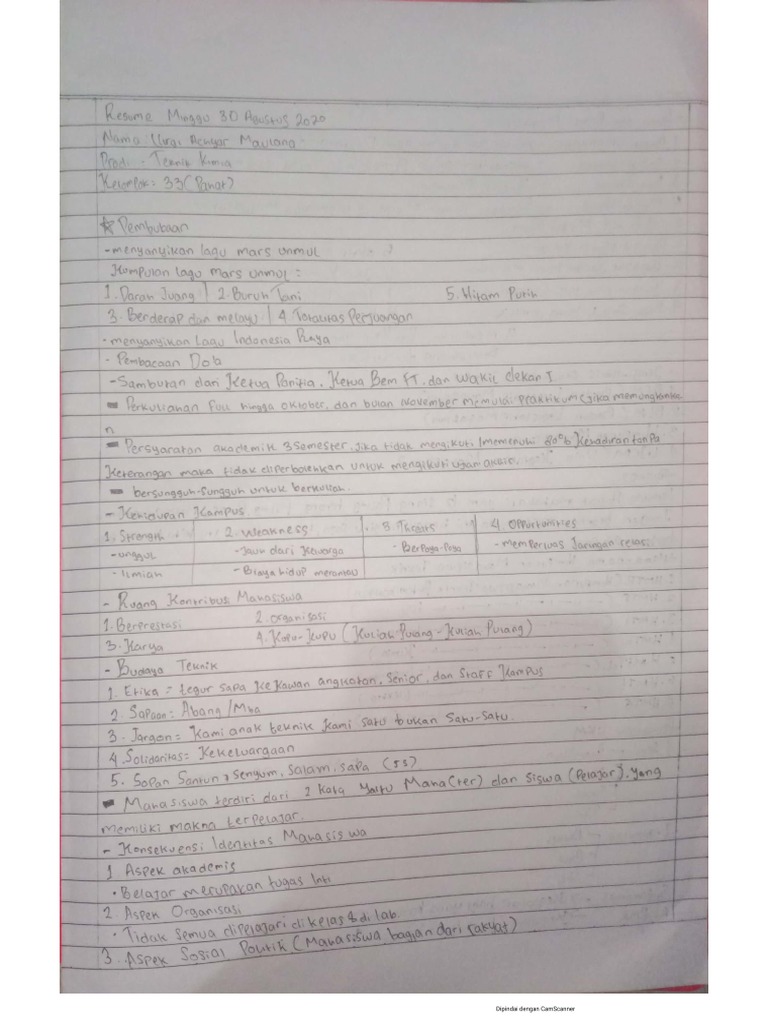 Resume Minggu 30 Agustus 2020
Nama Maulana
Prodi : Teknik Kimia
Kelompok : 33 (
☆ Pembukaan
- menyanyikan lagu mars unmul
Kumpulan lagu mars unmul :
1. Darah Juang 2. Buruh Tani 5. Hitam Putih
3. Berderap dan melaju 4. Totalitas Perjuangan
- menyanyikan Lagu Indonesia Raya
- Pembacaan Doa
- Sambutan dari Ketua Panitia, Ketua Bem FT, dan Wakil dekan 1.
- Perkuliahan Full hingga oktober, dan bulan November memulai praktikum (jika memungkinka
n
- Persyaratan akademik 3 Semester, Jika tidak mengikuti /memenuhi 80% Kehadiran tanpa
Keterangan maka tidak diperbolehkan untuk mengikuti ujian akhir.
- bersungguh-sungguh untuk berkuliah.
- Kehidupan Kampus
1. Strength 2. Weakness 3. Threats 4. Opportunities
- unggul - Jauh dari Keluarga - memperluas Jaringan relasi
- Ilmiah - Biaya hidup merantau
- Ruang Kontribusi Mahasiswa
1. Berprestasi 2. Organisasi
3. Karya 4. Kupu-Kupu (Kuliah Pulang - Kuliah Pulang)
- Budaya Teknik
1. Etika = tegur sapa ke Kawan angkatan, Senior, dan Staff Kampus
2. Sapaan = Abang /Mba
3. Jargon = Kami anak teknik Kami satu bukan Satu-Satu.
4. Solidaritas = Kekeluargaan
5. Sopan Santun → Senyum, Salam, sapa (5S)
- Mahasiswa terdiri dari 2 Kata yaitu Maha (ter) dan Siswa (Pelajar). Yang
memiliki makna terpelajar.
- Konsekuensi Identitas Mahasiswa
1. Aspek akademis
• Belajar merupakan tugas Inti
2. Aspek Organisasi
• Tidak semua dipelajari di kelas & di lab.
3. Aspek Sosial Politik (Mahasiswa bagian dari rakyat)
Dipindai dengan CamScanner